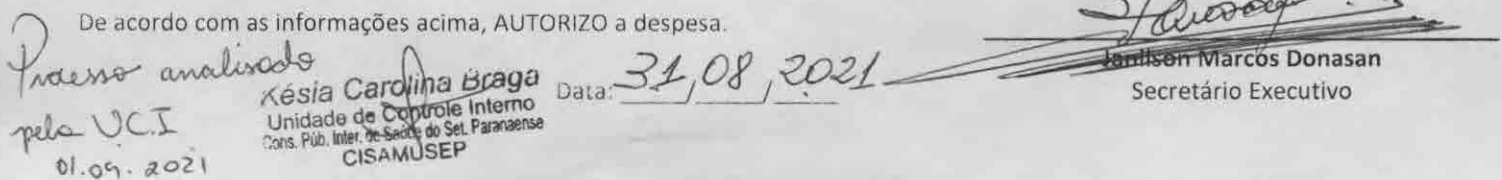 De acordo com as informações acima, AUTORIZO a despesa.
Processo analisado
pela UC.I
01.09.2021
Késia Carolina Braga
Unidade de Controle Interno
Cons. Púb. Inter. de Saúde do Set. Paranaense
CISAMUSEP
Data: 31,08,2021
Janilson Marcos Donasan
Secretário Executivo